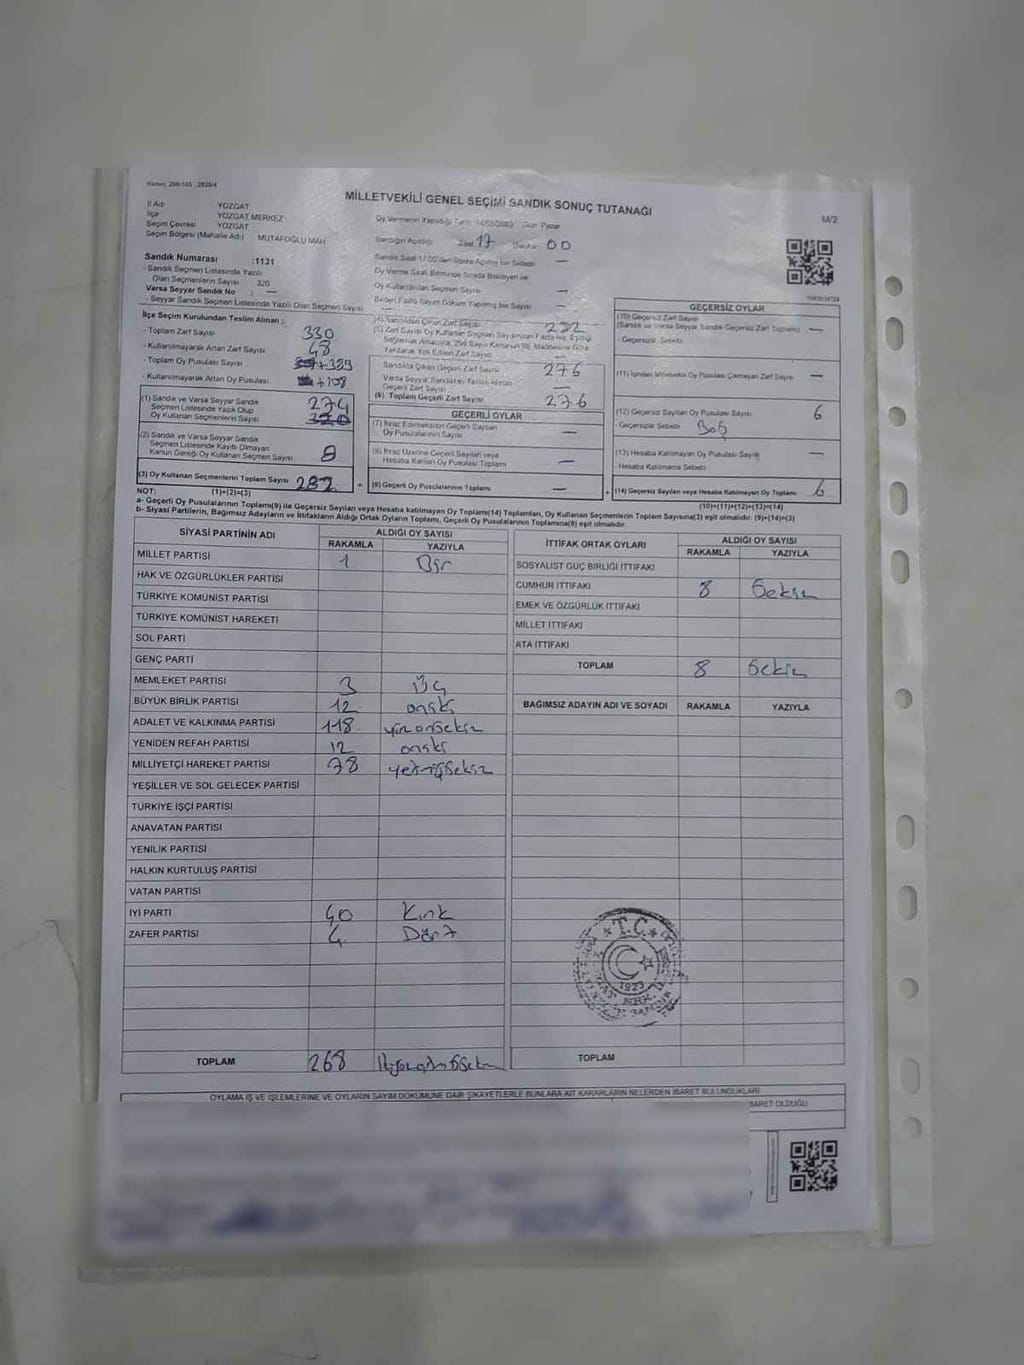 MİLLETVEKİLİ GENEL SEÇİMİ SANDIK SONUÇ TUTANAĞI
M/2
İl Adı YOZGAT
İlçe YOZGAT MERKEZ
Seçim Çevresi YOZGAT
Seçim Bölgesi (Mahalle Adı) MUTAFOĞLU MAH
Sandık Numarası :1131
- Sandık Seçmen Listesinde Yazılı
Olan Seçmenlerin Sayısı 320
Varsa Seyyar Sandık No : —
- Seyyar Sandık Seçmen Listesinde Yazılı Olan Seçmen Sayısı —
Oy Vermenin Yapıldığı Tarih 14/05/2023 Gün Pazar
Sandığın Açıldığı Saat 17 Dakika 00
Sandık Saat 17:00'den Sonra Açılmış İse Sebebi —
Oy Verme Saati Bitiminde Sırada Bekleyen ve
Oy Kullandırılan Seçmen Sayısı —
İlçe Seçim Kurulundan Teslim Alınan ;
- Toplam Zarf Sayısı 330
- Kullanılmayarak Artan Zarf Sayısı 48
- Toplam Oy Pusulası Sayısı +389
- Kullanılmayarak Artan Oy Pusulası +108
(1) Sandık ve Varsa Seyyar Sandık
Seçmen Listesinde Yazılı Olup
Oy Kullanan Seçmenlerin Sayısı 274
(2) Sandık ve Varsa Seyyar Sandık
Seçmen Listesinde Kayıtlı Olmayan
Kanun Gereği Oy Kullanan Seçmen Sayısı 8
(3) Oy Kullanan Seçmenlerin Toplam Sayısı 282
(1)+(2)=(3)
(4) Sandıktan Çıkan Zarf Sayısı 282
Sandıkta Çıkan Geçerli Zarf Sayısı 276
Varsa Seyyar Sandıktan Teslim Alınan
Geçerli Zarf Sayısı —
(6) Toplam Geçerli Zarf Sayısı 276
GEÇERLİ OYLAR
(7) İtiraz Edilmeksizin Geçerli Sayılan
Oy Pusulalarının Sayısı —
(8) İtiraz Üzerine Geçerli Sayılan veya
Hesaba Katılan Oy Pusulası Toplamı —
(9) Geçerli Oy Pusulalarının Toplamı —
GEÇERSİZ OYLAR
(10) Geçersiz Zarf Sayısı
(Sandık ve Varsa Seyyar Sandık Geçersiz Zarf Toplamı) —
- Geçersizlik Sebebi
(11) İçinden Milletvekili Oy Pusulası Çıkmayan Zarf Sayısı —
(12) Geçersiz Sayılan Oy Pusulası Sayısı 6
- Geçersizlik Sebebi Boş
(13) Hesaba Katılmayan Oy Pusulası Sayısı —
- Hesaba Katılmama Sebebi
(14) Geçersiz Sayılan veya Hesaba Katılmayan Oy Toplamı 6
(10)+(11)+(12)+(13)=(14)
NOT:
a- Geçerli Oy Pusulalarının Toplamı(9) ile Geçersiz Sayılan veya Hesaba katılmayan Oy Toplamı(14) Toplamları, Oy Kullanan Seçmenlerin Toplam Sayısına(3) eşit olmalıdır. (9)+(14)=(3)
b- Siyasi Partilerin, Bağımsız Adayların ve İttifakların Aldığı Ortak Oyların Toplamı, Geçerli Oy Pusulalarının Toplamına(9) eşit olmalıdır.
SİYASİ PARTİNİN ADI ALDIĞI OY SAYISI
RAKAMLA YAZIYLA
MİLLET PARTİSİ 1 Bir
HAK VE ÖZGÜRLÜKLER PARTİSİ
TÜRKİYE KOMÜNİST PARTİSİ
TÜRKİYE KOMÜNİST HAREKETİ
SOL PARTİ
GENÇ PARTİ
MEMLEKET PARTİSİ 3 Üç
BÜYÜK BİRLİK PARTİSİ 12 oniki
ADALET VE KALKINMA PARTİSİ 118 yüzonsekiz
YENİDEN REFAH PARTİSİ 12 oniki
MİLLİYETÇİ HAREKET PARTİSİ 78 yetmişsekiz
YEŞİLLER VE SOL GELECEK PARTİSİ
TÜRKİYE İŞÇİ PARTİSİ
ANAVATAN PARTİSİ
YENİLİK PARTİSİ
HALKIN KURTULUŞ PARTİSİ
VATAN PARTİSİ
İYİ PARTİ 40 Kırk
ZAFER PARTİSİ 4 Dört
TOPLAM 268 İkiyüzaltmışsekiz
İTTİFAK ORTAK OYLARI ALDIĞI OY SAYISI
RAKAMLA YAZIYLA
SOSYALİST GÜÇ BİRLİĞİ İTTİFAKI
CUMHUR İTTİFAKI 8 Sekiz
EMEK VE ÖZGÜRLÜK İTTİFAKI
MİLLET İTTİFAKI
ATA İTTİFAKI
TOPLAM 8 Sekiz
BAĞIMSIZ ADAYIN ADI VE SOYADI RAKAMLA YAZIYLA
T.C.
1923
TOPLAM
OYLAMA İŞ VE İŞLEMLERİNE VE OYLARIN SAYIM DÖKÜMÜNE DAİR ŞİKAYETLERLE BUNLARA AİT KARARLARIN NELERDEN İBARET BULUNDUKLARI